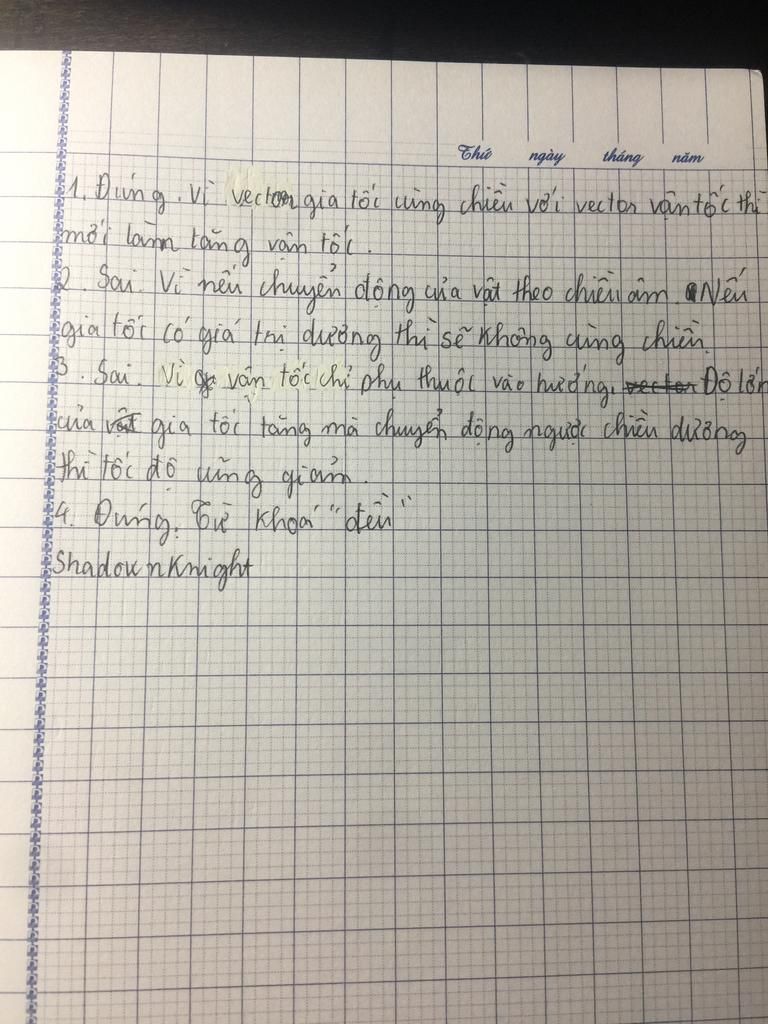 Thứ ngày tháng năm
1. Đúng. Vì vector gia tốc cùng chiều với vector vận tốc thì
mới làm tăng vận tốc.
2. Sai. Vì nếu chuyển động của vật theo chiều âm. Nếu
gia tốc có giá trị dương thì sẽ không cùng chiều.
3. Sai. Vì vận tốc chỉ phụ thuộc vào hướng. Độ lớn
của gia tốc tăng mà chuyển động ngược chiều dương
thì tốc độ cũng giảm.
4. Đúng. Từ khoá "đều"
ShadownKnight